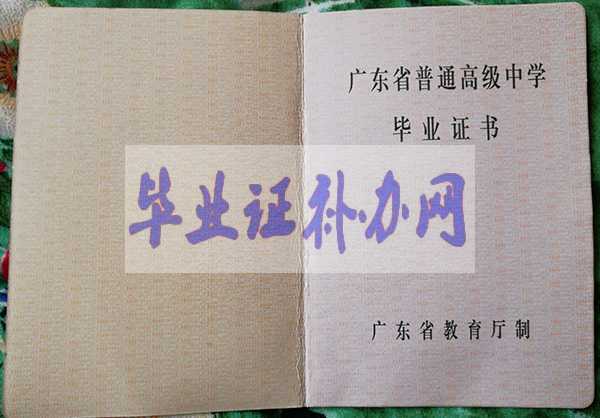 广东省普通高级中学
毕业证书
毕业证补办网
广东省教育厅制